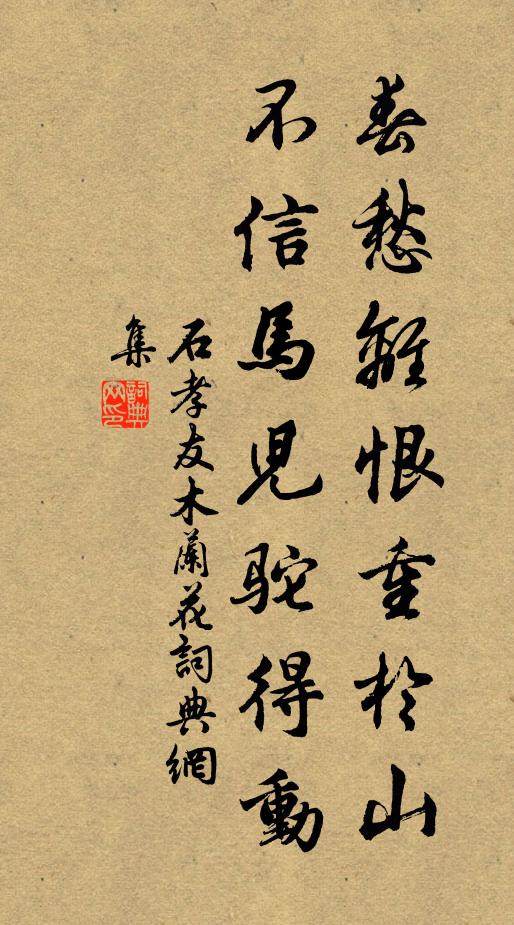 春愁離恨重於山
不信馬兒駝得動
石孝友木蘭花詞典網
集
詞典
网印